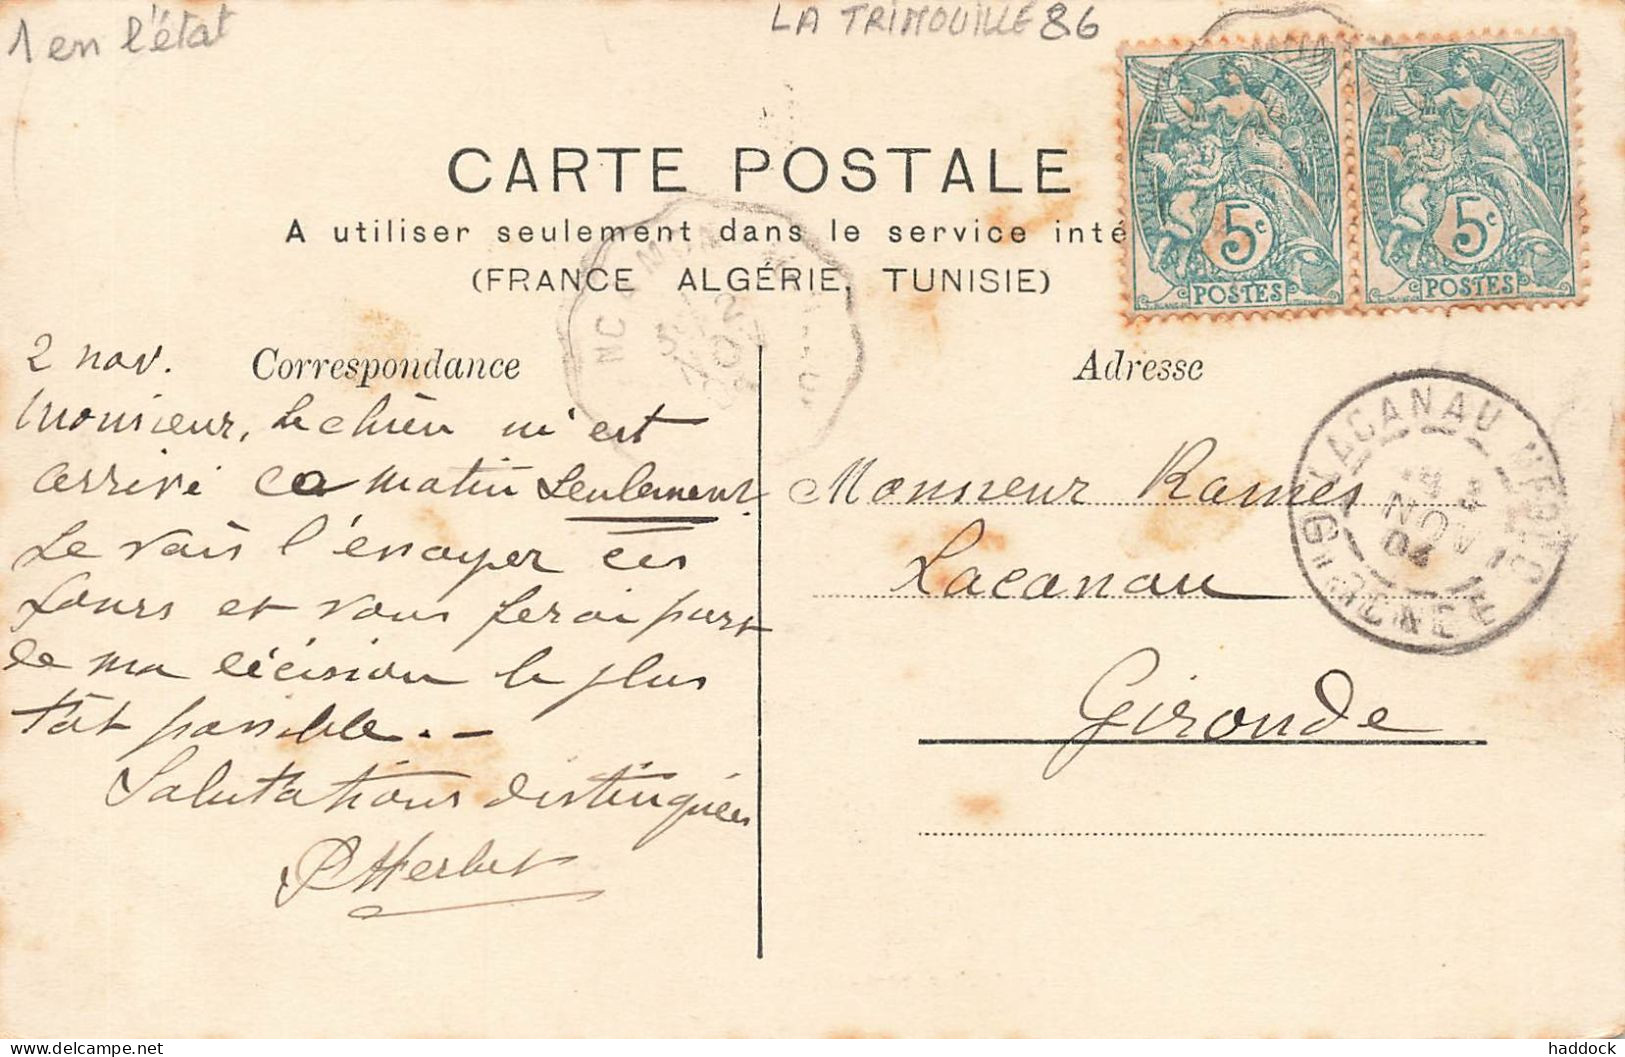 1 en l'état
LA TRIMOUILLE 86
CARTE POSTALE
A utiliser seulement dans le service inté
(FRANCE ALGÉRIE, TUNISIE)
RÉPUBLIQUE FRANÇAISE
5c
POSTES
5c
POSTES
2 nov.
Correspondance
Monsieur, le chien m'est
arrivé ce matin seulement
Je vais l'essayer ces
jours et vous ferai part
de ma décision le plus
tôt possible. -
Salutations distinguées
P Herbert
Adresse
Monsieur Rames
Lacanau
Gironde
LACANAU MEDOC
NOV
04
GIRONDE